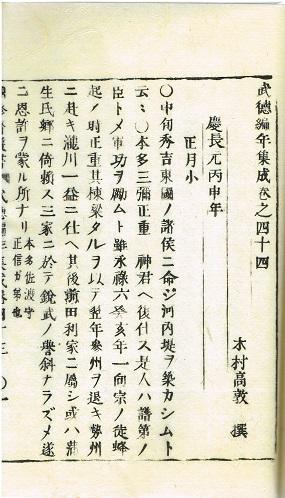 武徳編年集成巻之四十四
木村高敦 撰
慶長元丙申年
正月小
〇中旬秀吉東國ノ諸侯ニ命ジ河内堤ヲ築カシムト
云云〇本多三彌正重 神君ヘ復仕ス是人ハ譜第ノ
臣トメ軍功ヲ勵ムト雖永祿六癸亥年一向宗ノ徒蜂
起ノ時正重其棟梁タルヲ以テ翌年參州ヲ退キ勢州
ニ赴キ瀧川一益ニ仕ヘ其後前田利家ニ屬シ或ハ蒲
生氏郷ニ倚賴ス三家ニ於テ銳武ノ譽斜ナラズメ遂
ニ恩許ヲ蒙ル所ナリ 本多佐渡守
正信ガ弟也